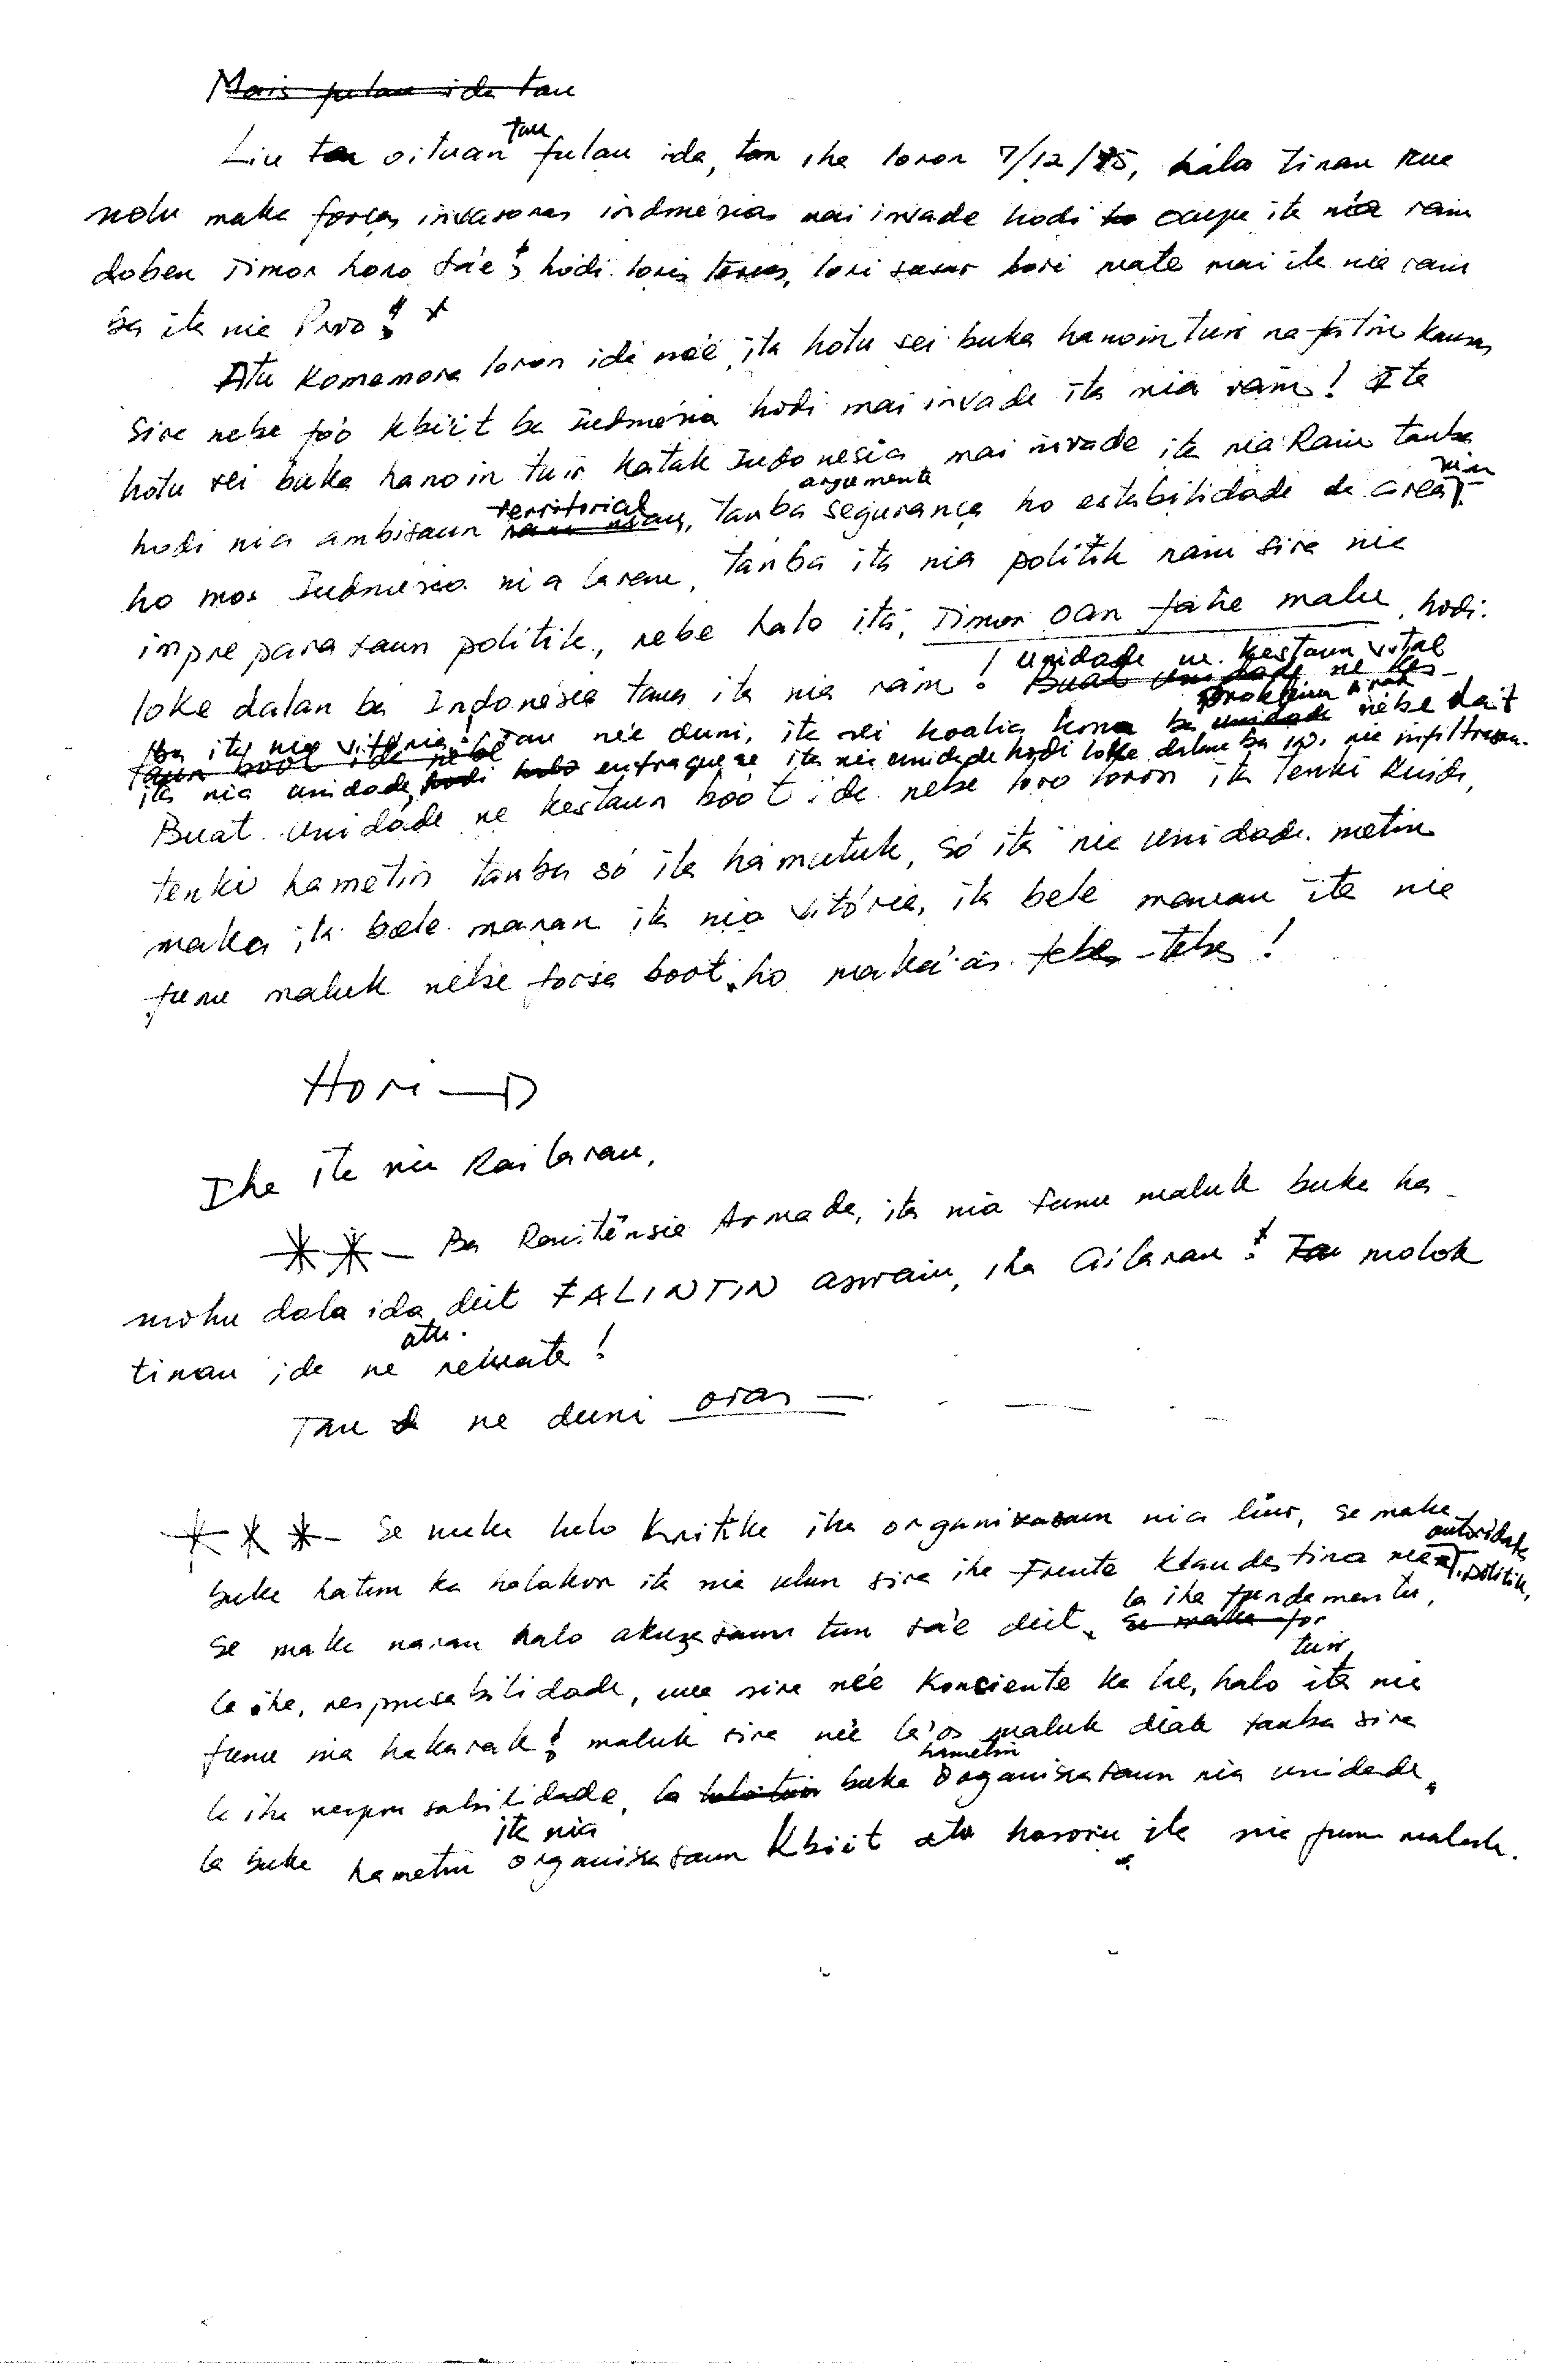 Mais fulan ida tan
Liu tan oituan tan fulan ida, tan iha loron 7/12/95, halo tinan rua
nolu maka forças invasoras indonésias mai invade hodi ocupa ita nia rain
doben Timor Loro Sa'e! hodi loris terus, lori susar lori mate mai ita nia rain
ba ita nia Povo!
Atu Komemora loron ida ne'e, ita hotu sei buka hanoin tuir nafatin kausas
sira nebe fó'o kbiit ba Indonésia hodi mai invade ita nia rain! Ita
hotu sei buka hanoin tuir katak Indonesia mai invade ita nia Rain tanba
hodi nia ambisaun territorial, tanba argumenta segurança ho estabilidade de area
ho mos Indonésia nia laran, tanba ita nia polítik rain sira nia
inpreparasaun polítik, nebe halo ita, Timor oan fahe malu, hodi
loke dalan ba Indonésia tama ita nia rain! Unidade ne kestaun vital
ba ita nia vitória! Tan ne'e duni, ita sei koalia kona ba nebe dait
ita nia unidade, enfraquese ita nia unidade hodi loke dalan ba in. nia infiltrasaun.
Buat Unidade ne kestaun boot ida nebe loro loron ita tenki kuida,
tenki hametin tanba só ita hamutuk, só ita nia Unidade metin
maka ita bele manan ita nia vitória, ita bele manan ita nia
funu maluk nebe forsa boot ho maka'as tebes-tebes!
Hori
Iha ita nia Rai laran,
Ba Resistênsia Armada, ita nia funu maluk buka ha-
mohu dala ida deit FALINTIN aswain, iha Ailaran! Tan molok
tinan ida ne atu remata!
Tan ne duni oras
Se maka halo kritika iha organizasaun nia liur, se maka
buka hatun ka halakon ita nia ulun sira iha Frente Klandestina nia autoridade politik,
Se maka naran halo akuzasaun tun sa'e deit, la iha fundamentu,
la iha responsabilidade, ema sira ne'e konsciente ka lae, halo tuir ita nia
funu nia hakarak! maluk sira ne'e la'os maluk diak tanba sira
la iha responsabilidade, la buka hametin organizasaun nia unidade,
la buka hametin ita nia organizasaun kbiit atu hasoru ita nia funu maluk.